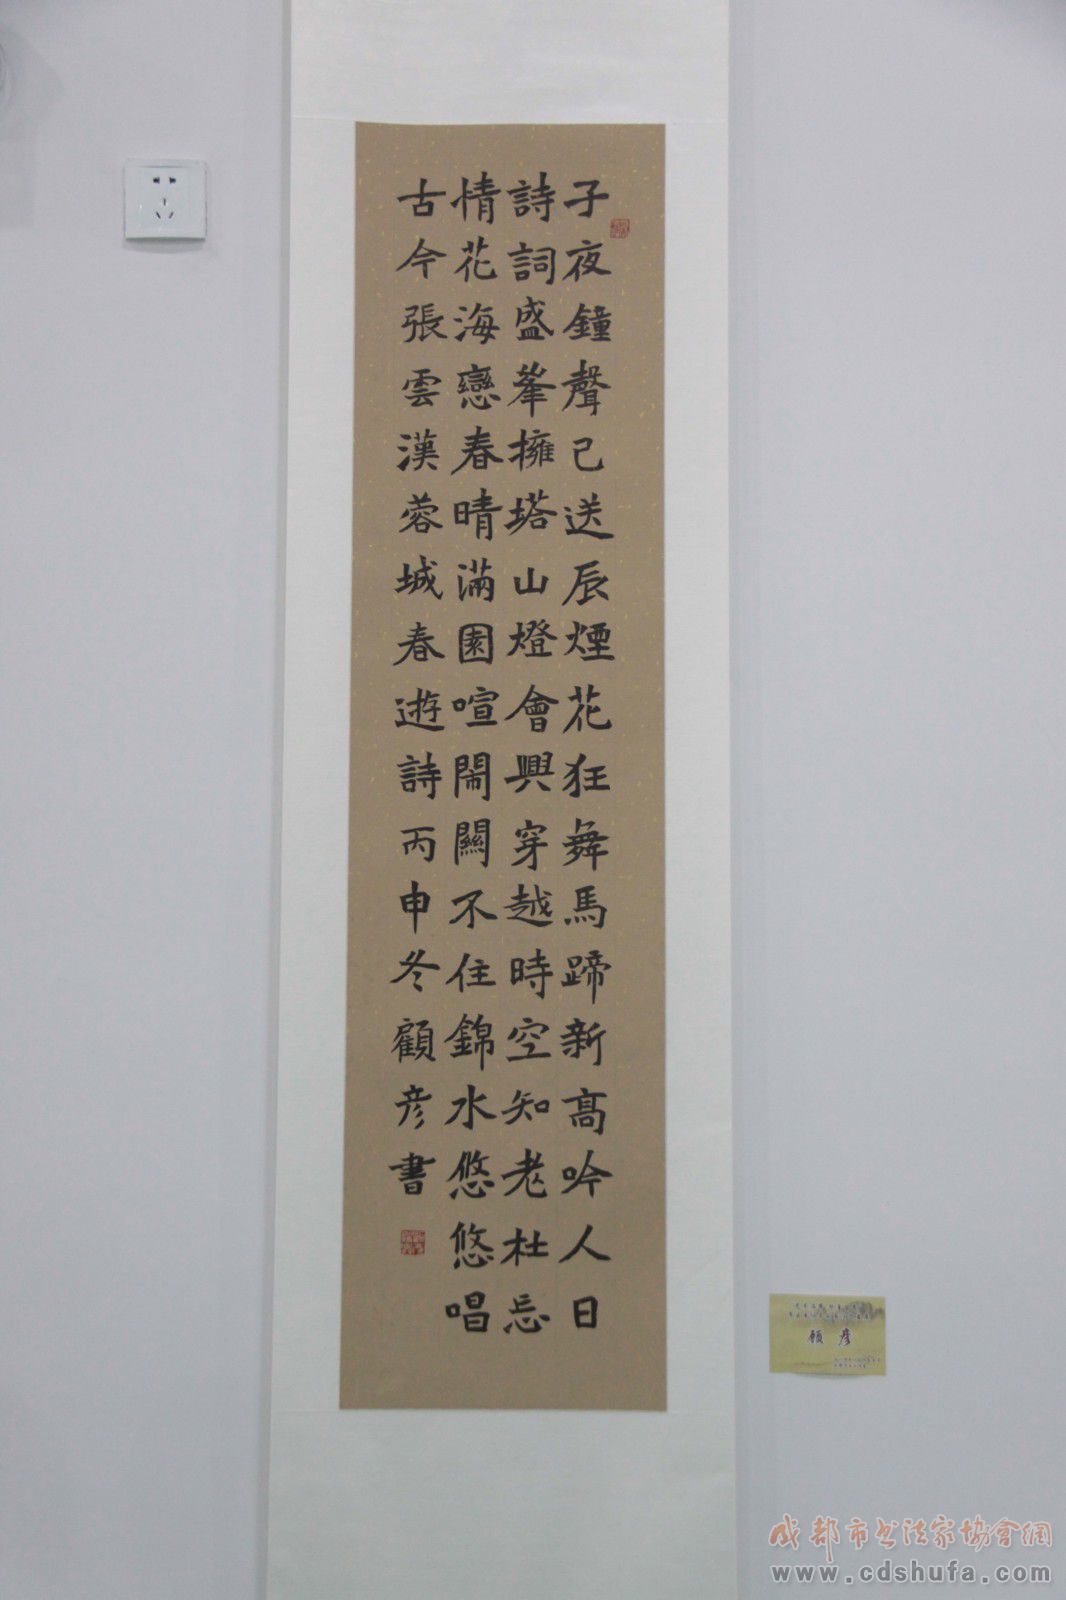 子夜鐘聲已送辰煙花狂舞馬蹄新高吟人日
詩詞盛峯擁塔山燈會興穿越時空知老杜忘
情花海戀春晴滿園喧鬧關不住錦水悠悠唱
古今張雲漢蓉城春遊詩丙申冬顧彦書
顾彦
成都市书法家协会网
www.cdshufa.com